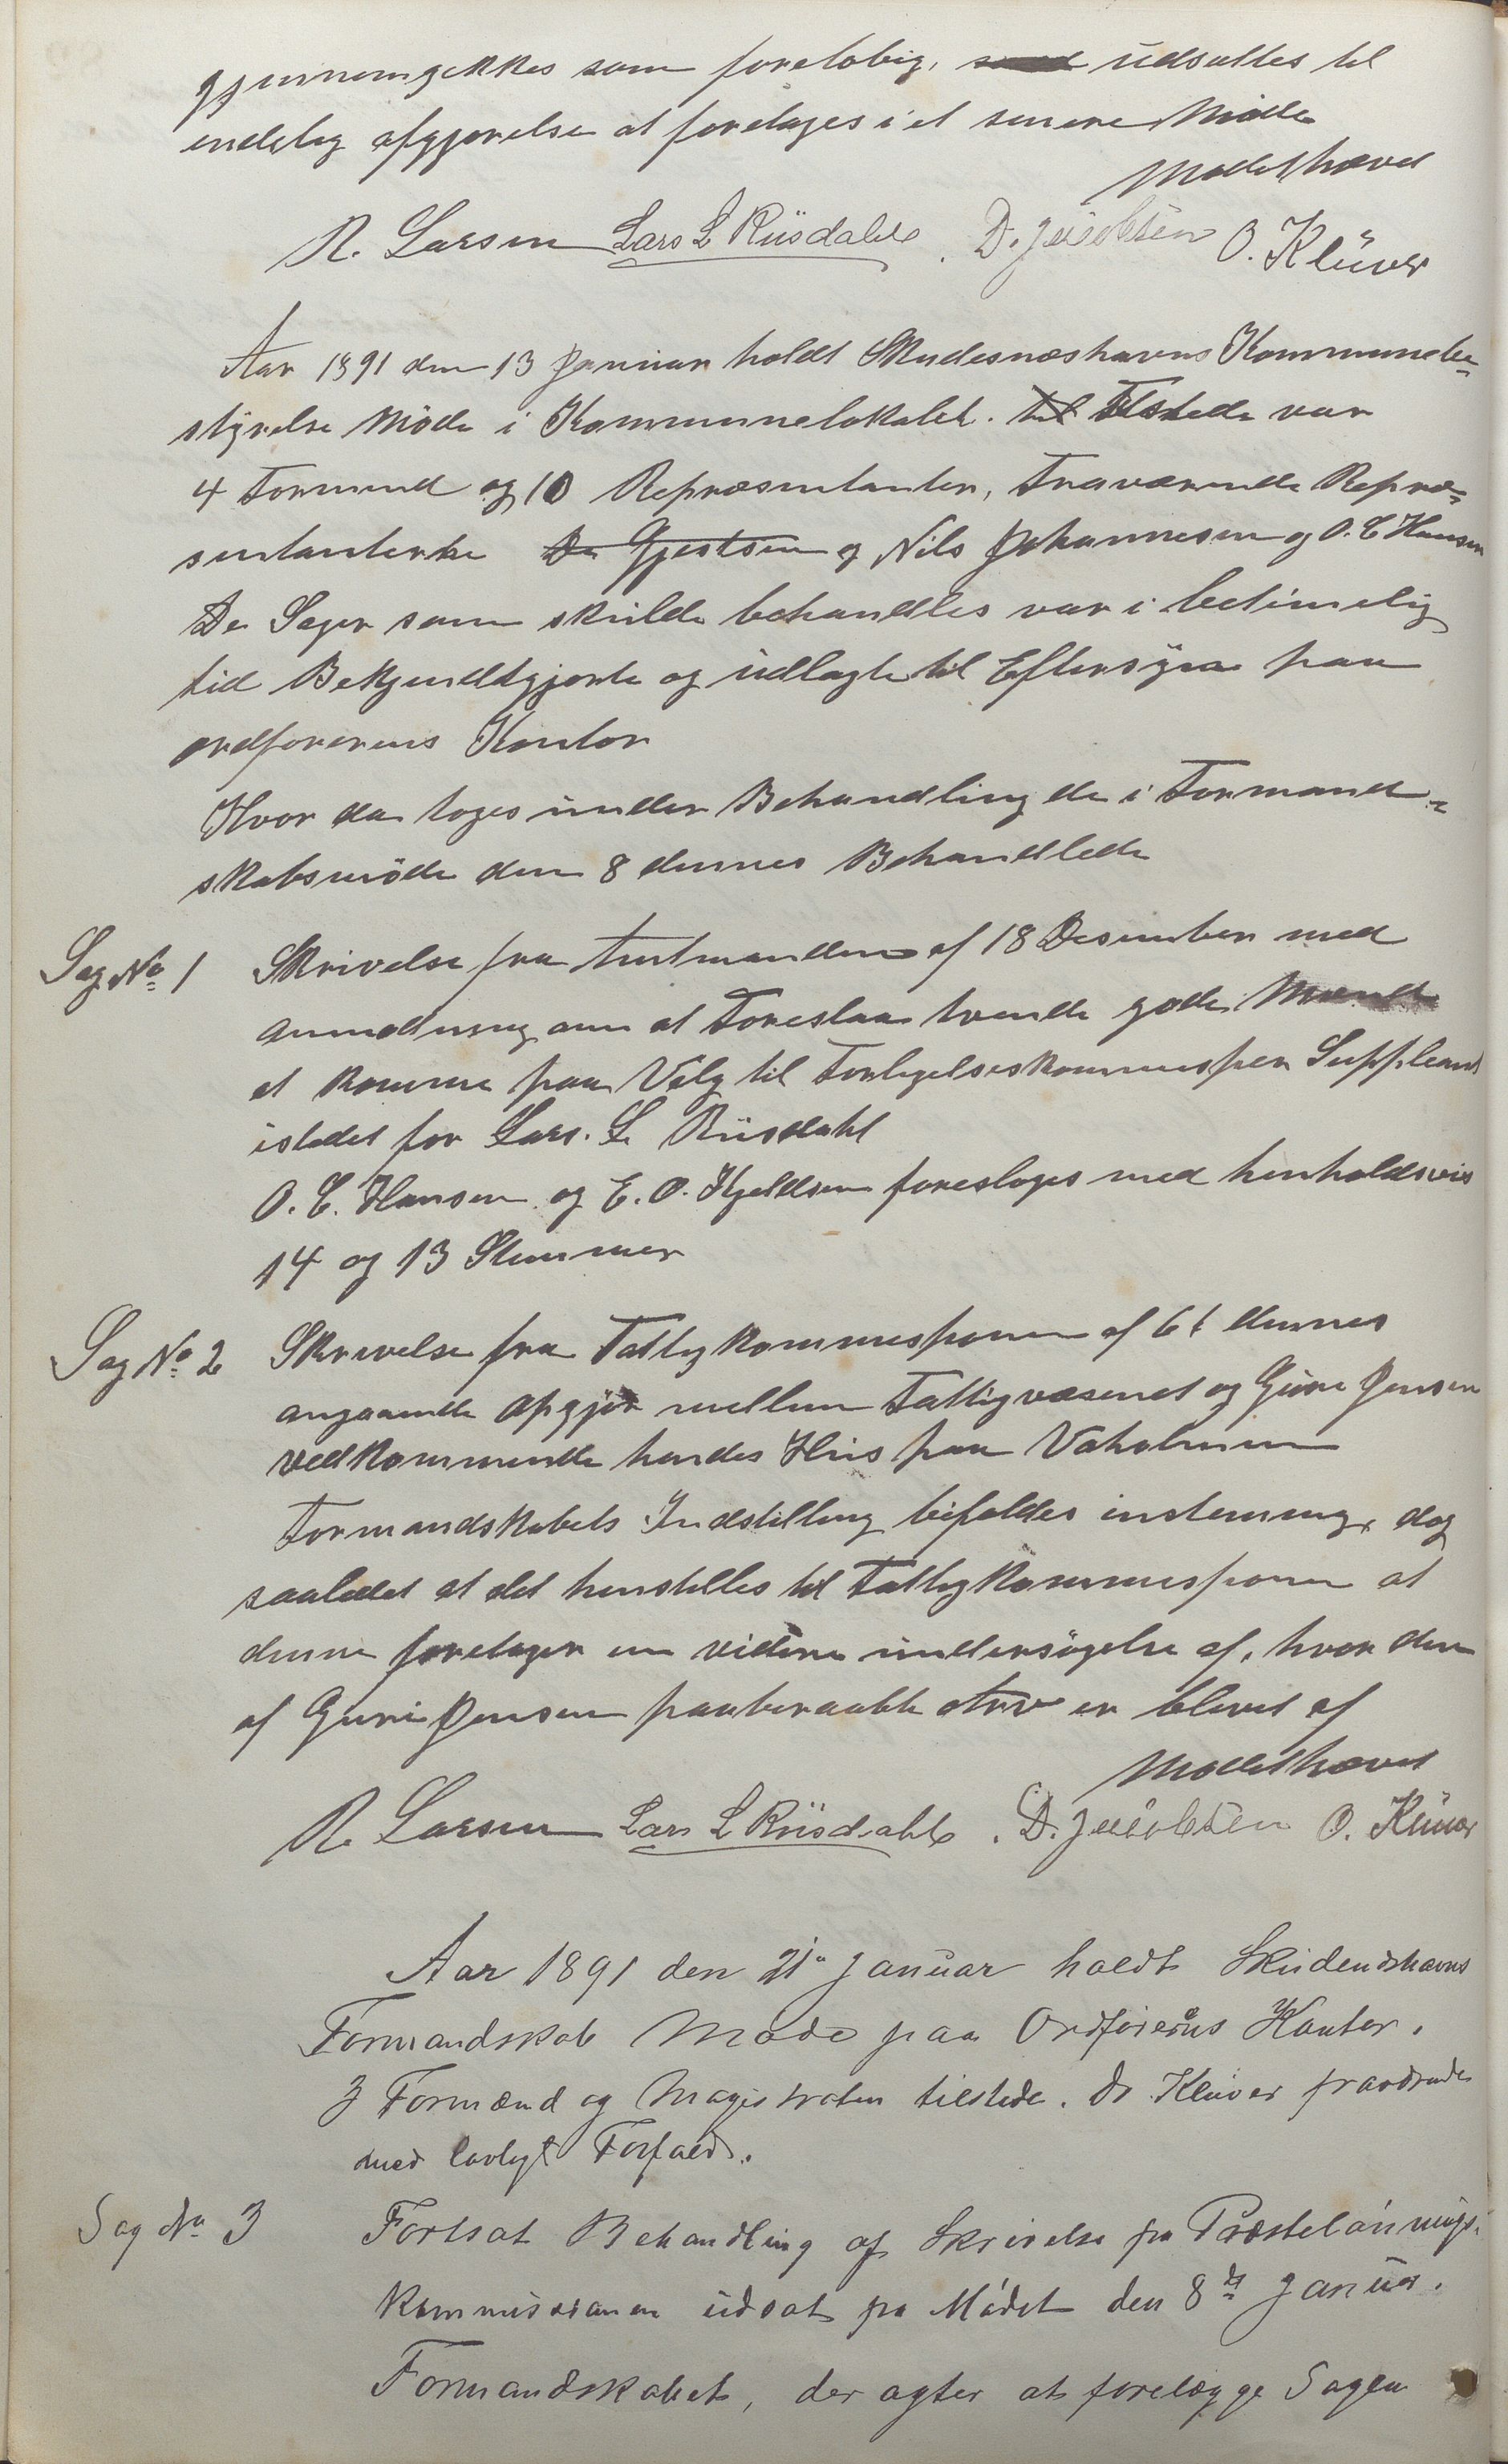 gjennemgikkes som foreløbig, udsattes til
endelig afgjørelse at foretages i et senere Møde
Mødet hævet
R. Larsen Lars L Riisdahl. D. Jacobsen O. Klüver
Aar 1891 den 13 Januar holdt Skudesneshavns Kommunebe-
styrelse Møde i Kommunelokalet. Tilstede var
4 Formænd og 10 Repræsentanter, Fraværende Repræ-
sentanterne De Gjertsen og Nils Johannesen og O. C Hansen
De Sager som skulde behandles var i betimelig
tid Bekjendtgjorte og udlagte til Eftersyn paa
ordførerens Kontor
Hvor da toges under Behandling de i Formand-
skabsmöde den 8 dennes Behandlede
Sag No 1 Skrivelse fra Amtmanden af 18 Desember med
anmodning om at Foreslaa tvende gode Mænd
at komme paa Valg til Forligelseskommisser Suppleant
istedet for Lars. L. Riisdahl
O. C. Hansen og E. O. Kjeldsen foresloges med henholdsvis
14 og 13 Stemmer
Sag No 2 Skrivelse fra Fattigkommisjonen af 6t dennes
angaaende Opgjør mellem Fattigvæsenet og Guri Jensen
vedkommende hendes Hus paa Vaholmen
Formandskabets Indstilling bifaldes enstemmig, dog
saaledes at det henstilles til Fattigkommisjonen at
denne foretager en videre undersøgelse af, hvor den
af Guri Jensen paaberaabte Arv er blevet af
Mødet hævet
R. Larsen Lars L Riisdahl. D. Jacobsen O. Klüver
Aar 1891 den 21de Januar holdt Skudeneshavns
Formandskab Møde paa Ordførerens Kontor.
3 Formænd og Magistraten tilstede. Dr Klüver fraværende
med lovligt Forfald.
Sag No 3 Fortsat Behandling af Skrivelse fra Præstelønnings-
kommissionen udsat fra Mödet den 8de Januar.
Formandskabet, der agter at forelægge Sagen